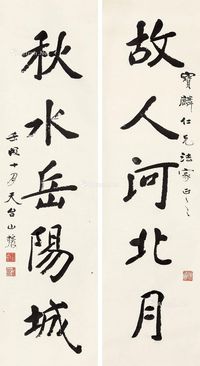 故人河北月
寶麟仁兄法家正之
秋水岳陽城
天台山農